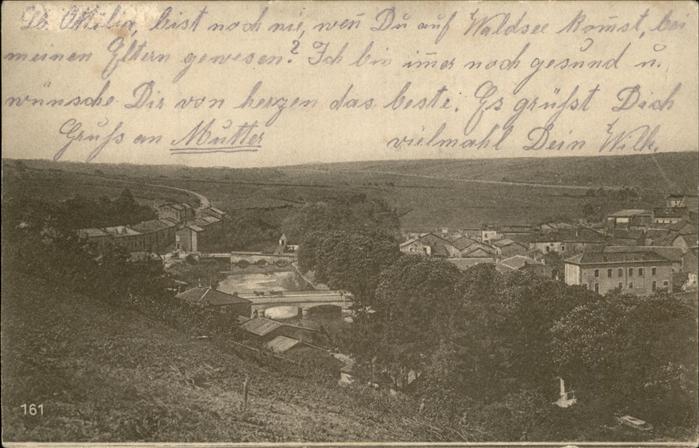 Lb. Ottilia, bist noch nie, wen̄ Du auf Waldsee kom̄st, bei
meinen Eltern gewesen? Ich bin im̄er noch gesund u.
wünsche Dir von herzen das beste. Es grüßt Dich
Gruß an Mutter vielmahl Dein Wilh.
161